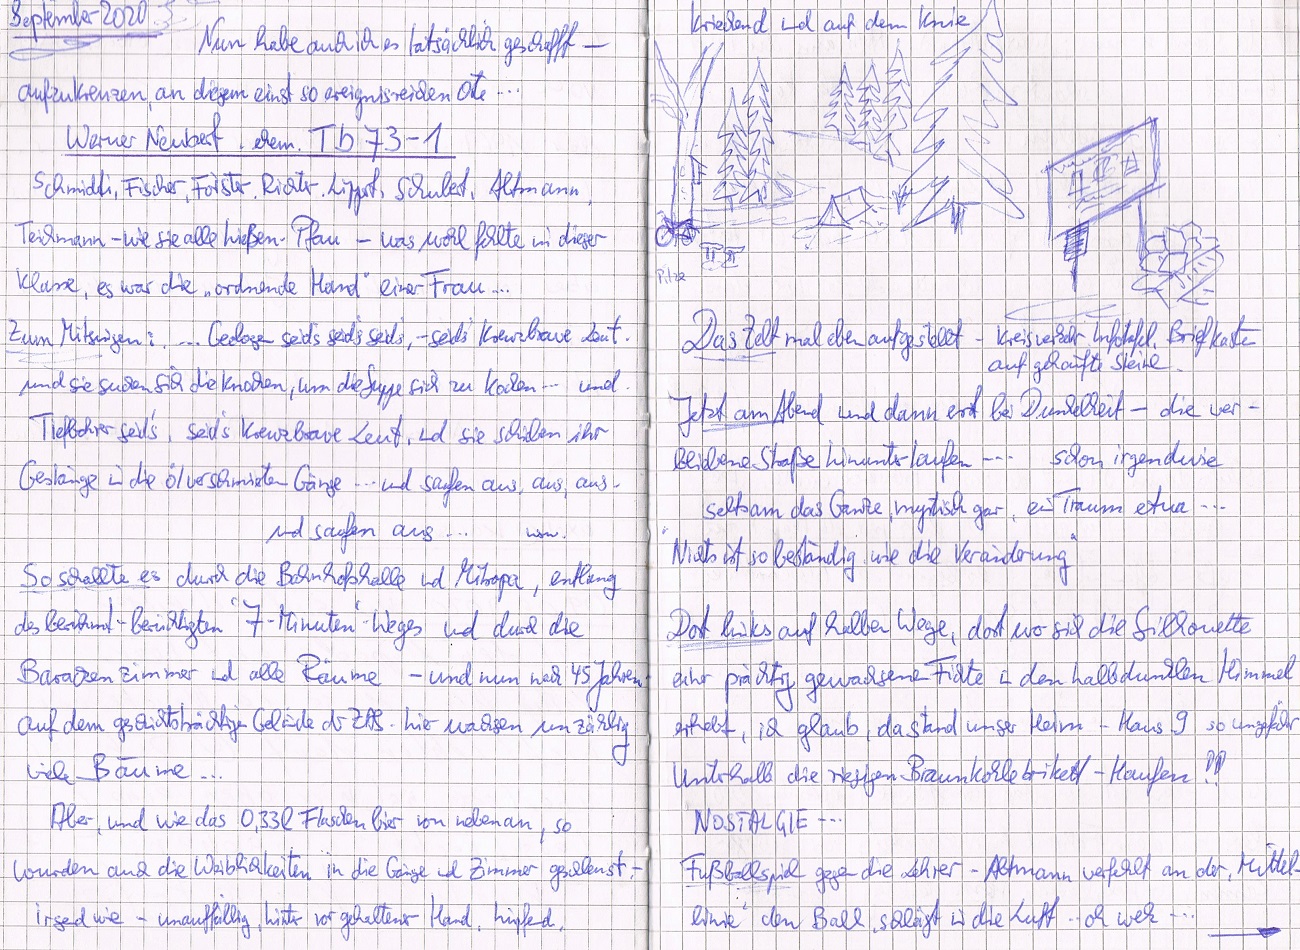 September 2020
Nun habe auch ich es tatsächlich geschafft –
aufzukreuzen, an diesem einst so ereignisreichen Orte ...
Werner Neubert, ehem. Tb 73-1
Schmidti, Fischer, Förster, Richter, Lippst, Schubert, Altmann,
Teichmann – wie sie alle hießen. Pfau – was wohl fehlte in dieser
Klasse, es war die „ordnende Hand" einer Frau ...
Zum Mitsingen: ... Geologen seids seids seids, – seids Kreuzbrave Leut.
und sie suchen sich die Knochen, um die Suppe sich zu kochen ... und.
Tiefbohrer seid's, seid's Kreuzbrave Leut, und sie schieben ihr
Gestänge in die ölverschmierten Gänge ... und saufen aus, aus, aus –
und saufen aus ... usw.
So schallte es durch die Bahnhofshalle und Mitropa, entlang
des berühmt-berüchtigten "7-Minuten"-Weges und durch die
Barackenzimmer und alle Räume – und nun nach 45 Jahren
auf dem geschichtsträchtigen Gelände der ZAS. hier wachsen unzählig
viele Bäume ...
Aber, und wie das 0,33l Flaschenbier von nebenan, so
wurden auch die Weiblichkeiten in die Gänge und Zimmer geschleust, –
irgendwie – unauffällig, hinter vorgehaltener Hand, hüpfend,
kriechend und auf dem Knie
Pilze
Das Zelt mal eben aufgestellt – Kreisverkehr Infotafel, Briefkasten
aufgehäufte Steine.
Jetzt am Abend und dann erst bei Dunkelheit – die ver-
bliebene Straße hinunterlaufen ... schon irgendwie
seltsam das Ganze, mystisch gar, ein Traum etwa ...
"Nichts ist so beständig wie die Veränderung"
Dort links auf halben Wege, dort wo sich die Silhouette
einer prächtig gewachsene Fichte in den halbdunklen Himmel
erhebt, ich glaub, da stand unser Heim – Haus 9 so ungefähr
unterhalb die riesigen Braunkohlebrikett-Haufen !?
NOSTALGIE ...
Fußballspiel gegen die Lehrer – Altmann verfehlt an der "Mittel-
linie" den Ball, schlägt in die Luft ... oh weh ...